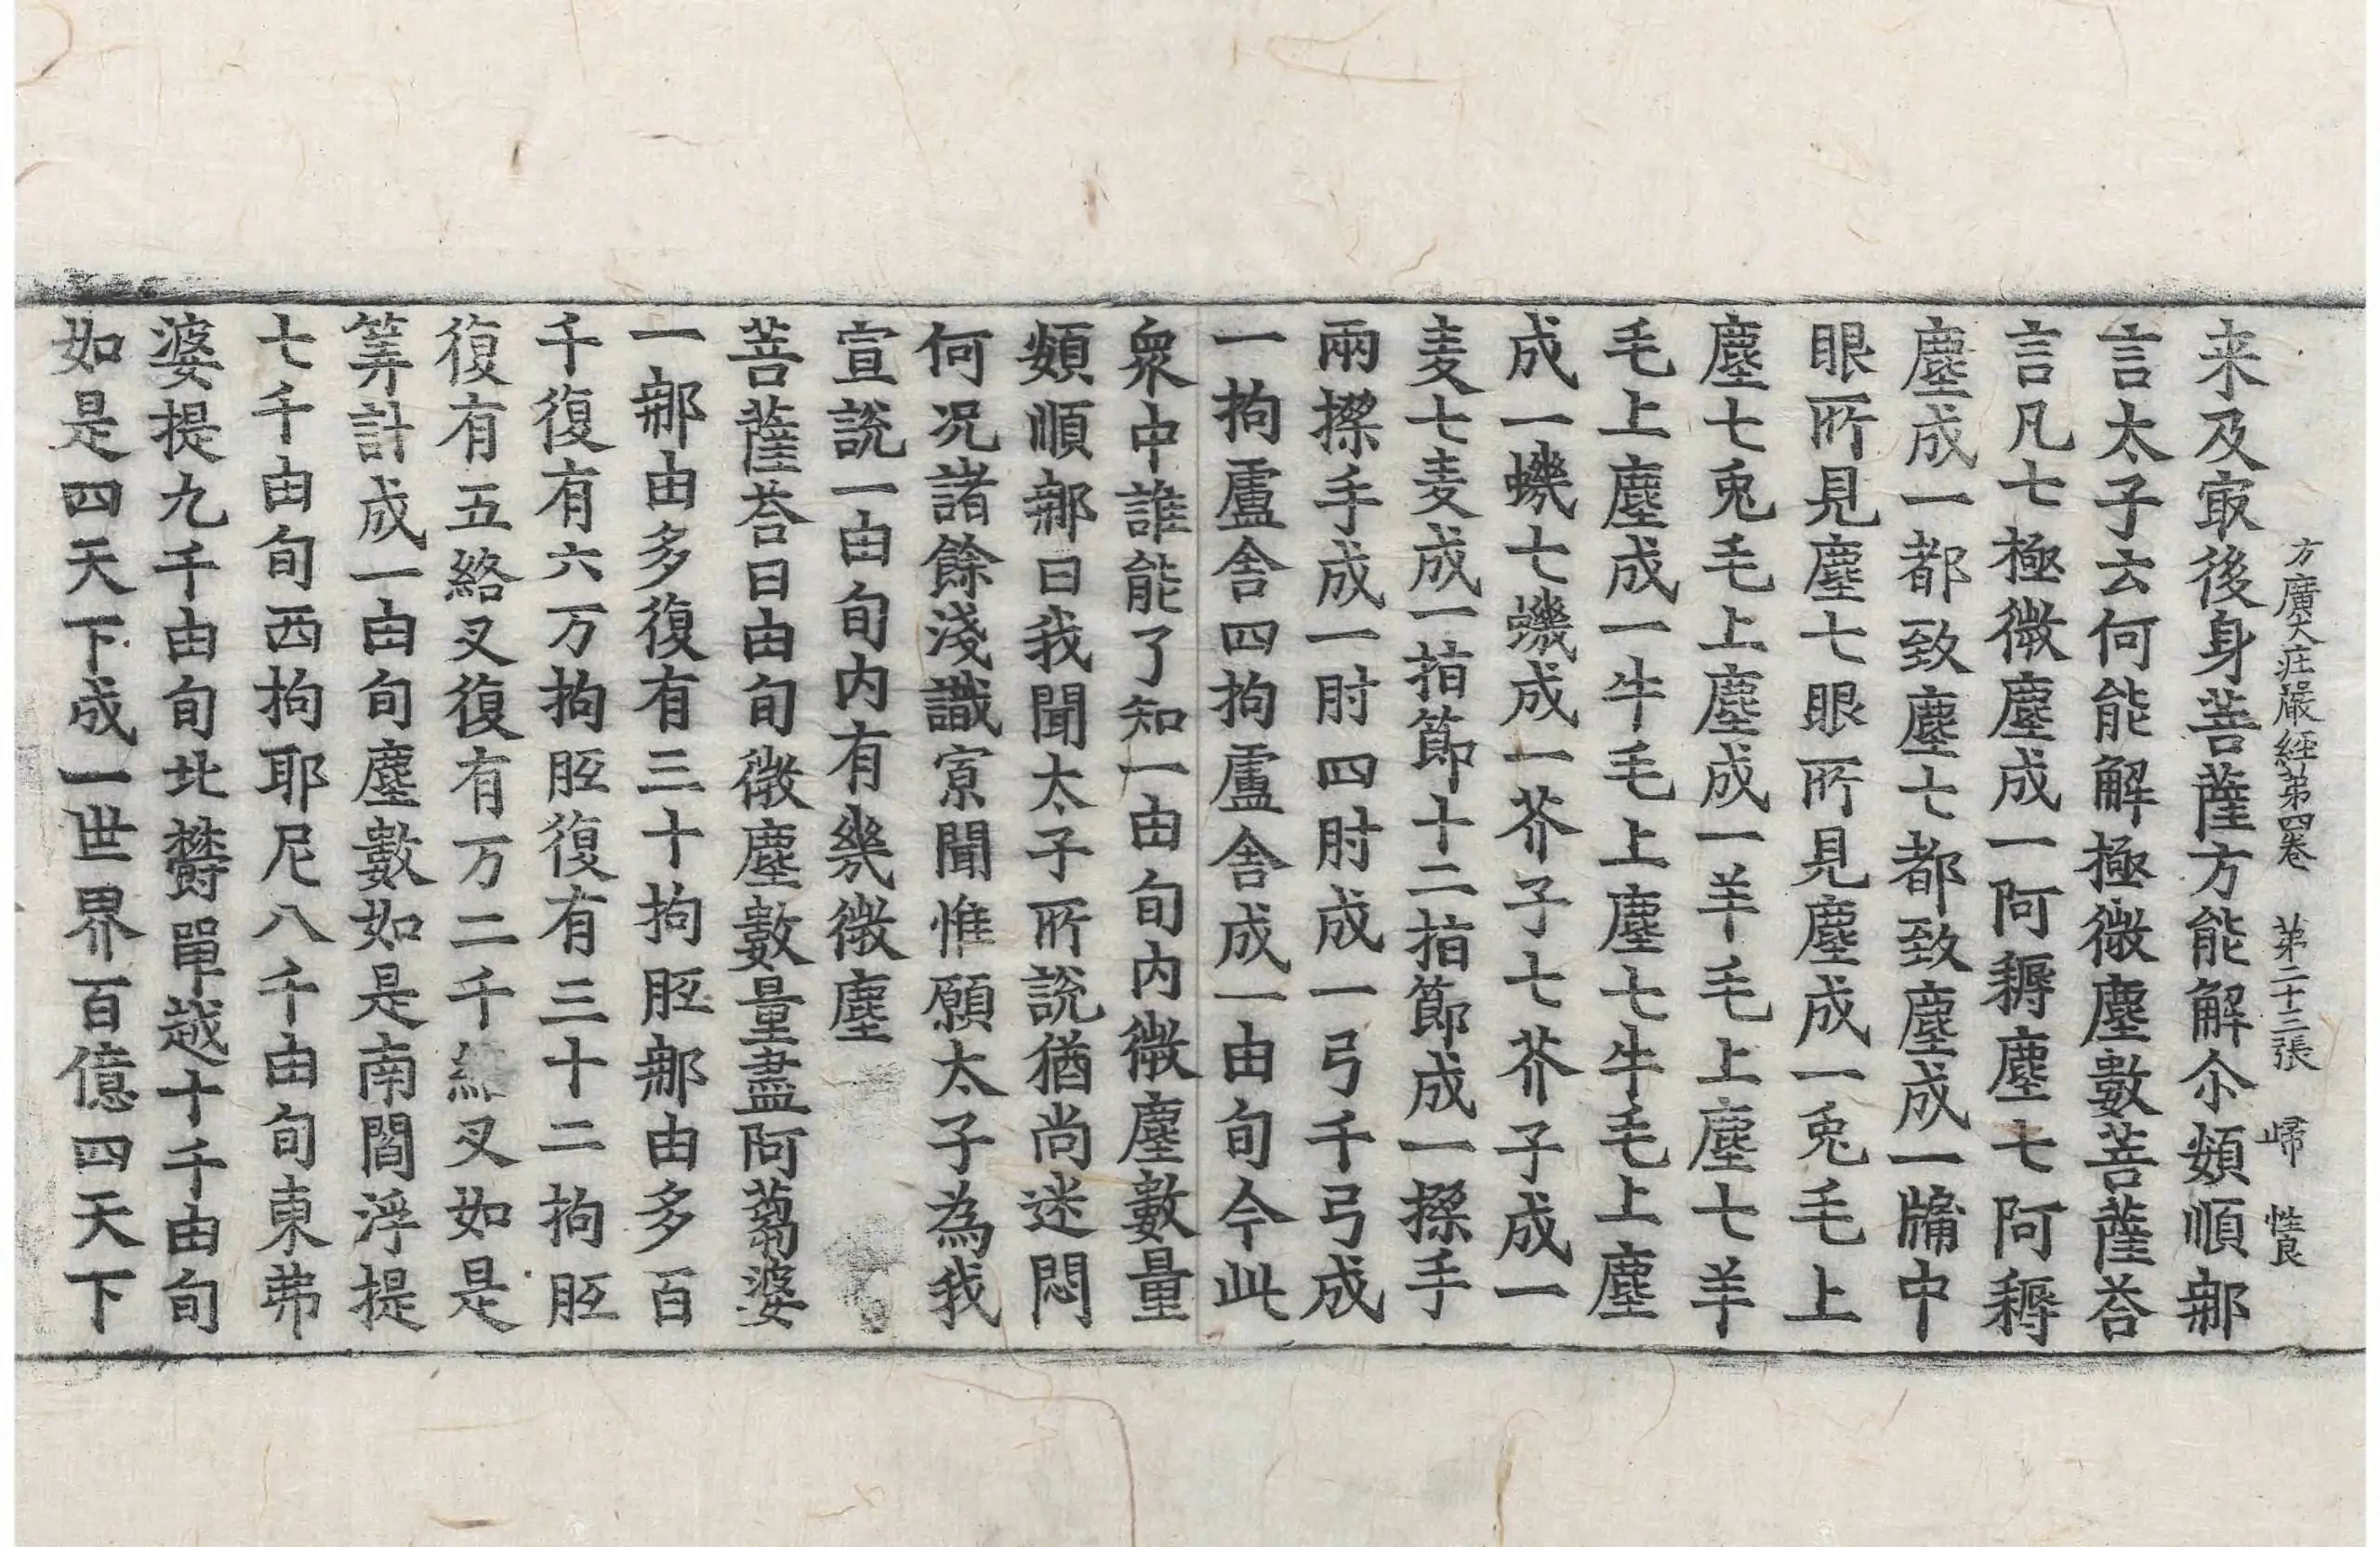 方廣大庄嚴經第四卷 第二十三張 歸 性良
来及㝡後身菩薩方能解尒頞順那
言太子云何能解極微塵數菩薩荅
言凡七極微塵成一阿耨塵七阿耨
塵成一都致塵七都致塵成一牖中
眼所見塵七眼所見塵成一兎毛上
塵七兎毛上塵成一羊毛上塵七羊
毛上塵成一牛毛上塵七牛毛上塵
成一蟣七蟣成一芥子七芥子成一
麦七麦成一指節十二指節成一搩手
兩搩手成一肘四肘成一弓千弓成
一拘盧舎四拘盧舎成一由旬今此
衆中誰能了知一由旬内微塵數量
頞順那曰我聞太子所說猶尚迷悶
何况諸餘淺識寡聞惟願太子為我
宣說一由旬内有幾微塵
菩薩荅曰由旬微塵數量盡阿蒭婆
一那由多復有三十拘胝那由多百
千復有六万拘胝復有三十二拘胝
復有五絡叉復有万二千絡叉如是
筭計成一由旬塵數如是南閻浮提
七千由旬西拘耶尼八千由旬東弗
婆提九千由旬北欝單越十千由旬
如是四天下成一世界百億四天下